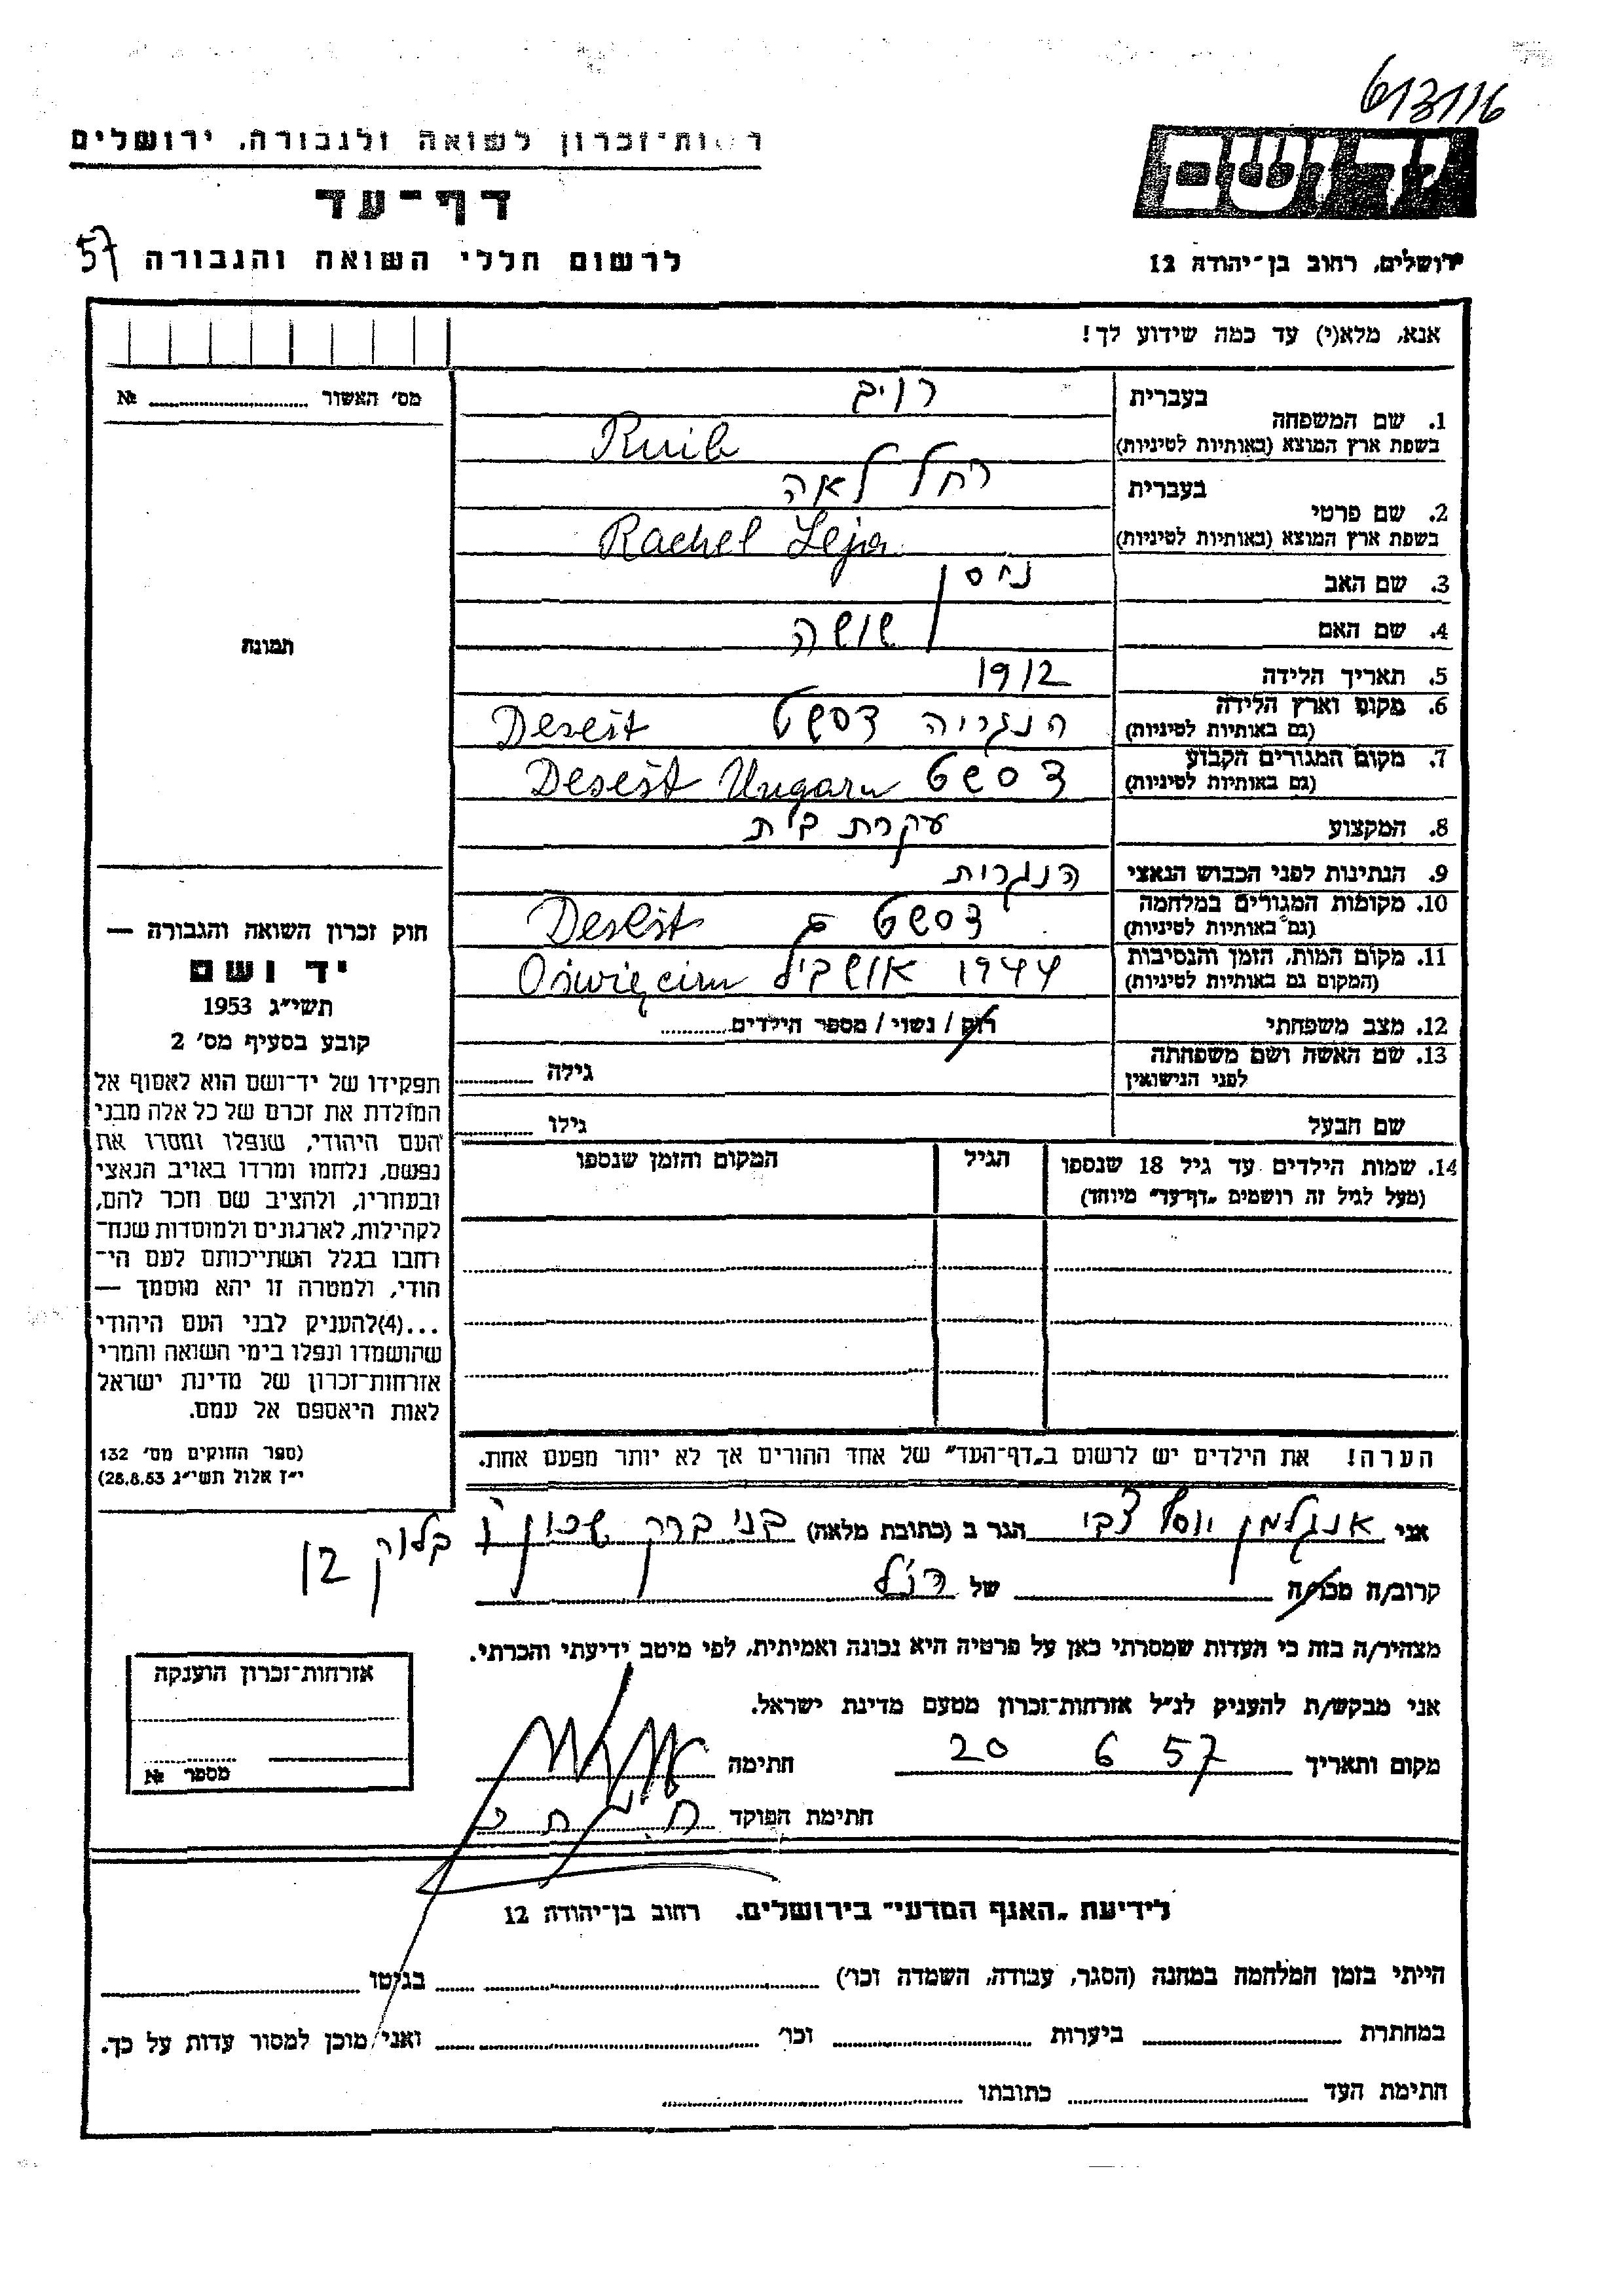 613116
רשות־זכרון לשואה ולגבורה, ירושלים
יד ושם
דף־עד
לרשום חללי השואה והגבורה
57
ירושלים, רחוב בן־יהודה 12
אנא, מלא(י) עד כמה שידוע לך!
מס׳ האשור № 
1. שם המשפחה
בעברית
רויב
בשפת ארץ המוצא (באותיות לטיניות)
Ruib
2. שם פרטי
בעברית
רחל לאה
בשפת ארץ המוצא (באותיות לטיניות)
Rachel Leja
3. שם האב
ניסן
4. שם האם
שושה
5. תאריך הלידה
1912
6. מקום וארץ הלידה
(גם באותיות לטיניות)
הנגריה דסשט Deseśt
7. מקום המגורים הקבוע
(גם באותיות לטיניות)
דסשט Deseśt Ungarn
8. המקצוע
עקרת בית
9. הנתינות לפני הכבוש הנאצי
הנגרית
10. מקומות המגורים במלחמה
(גם באותיות לטיניות)
דסשט Deseśt
11. מקום המות, הזמן והנסיבות
(המקום גם באותיות לטיניות)
1944 Oświęcim
12. מצב משפחתי
רוק / נשוי / מספר הילדים
13. שם האשה ושם משפחתה
לפני הנישואין
גילה
שם הבעל
גילו
14. שמות הילדים עד גיל 18 שנספו
(מעל לגיל זה רושמים „דף־עד” מיוחד)
הגיל
המקום והזמן שנספו
תמונה
חוק זכרון השואה והגבורה —
יד ושם
תשי״ג 1953
קובע בסעיף מס׳ 2
תפקידו של יד־ושם הוא לאסוף אל
המולדת את זכרם של כל אלה מבני
העם היהודי, שנפלו ומסרו את
נפשם, נלחמו ומרדו באויב הנאצי
ובעוזריו, ולהציב שם וזכר להם,
לקהילות, לארגונים ולמוסדות שנח־
רחבו בגלל השתייכותם לעם הי־
הודי, ולמטרה זו יהא מוסמך —
...(4)להעניק לבני העם היהודי
שהושמדו ונפלו בימי השואה והמרי
אזרחות־זכרון של מדינת ישראל
לאות היאספם אל עמם.
(ספר החוקים מס׳ 132
י״ז אלול תשי״ג 28.8.53)
הערה! את הילדים יש לרשום ב„דף־העד” של אחד ההורים אך לא יותר מפעם אחת.
אני אנגלמן יוסף צבי הגר ב (כתובת מלאה) בני ברק שכון ו בלוק 12
קרוב/ה מכר/ה של הנ״ל
מצהיר/ה בזה כי העדות שמסרתי כאן על פרטיה היא נכונה ואמיתית, לפי מיטב ידיעתי והכרתי.
אני מבקש/ת להעניק לנ״ל אזרחות־זכרון מטעם מדינת ישראל.
מקום ותאריך 20 6 57 חתימה
חתימת הפוקד
אזרחות־זכרון הוענקה
מספר №
לידיעת „האגף המדעי” בירושלים. רחוב בן־יהודה 12
הייתי בזמן המלחמה במחנה (הסגר, עבודה, השמדה וכו׳) בגיטו
במחתרת ביערות וכו׳ ואני מוכן למסור עדות על כך.
חתימת העד כתובתו